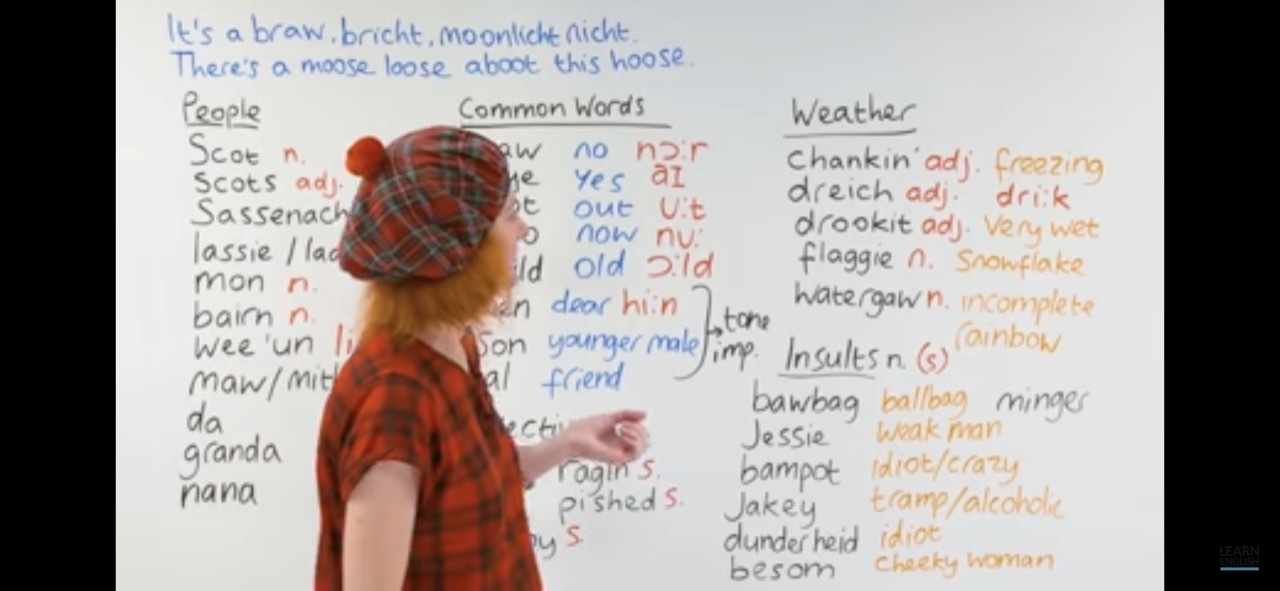 It's a braw, bricht, moonlicht nicht.
There's a moose loose aboot this hoose.
People
Scot n.
Scots adj.
Sassenach
lassie / lad
mon n.
bairn n.
wee 'un
maw/mit
da
granda
nana
Common Words
aw no nɔːr
ye yes aɪ
out uːt
now nuː
ld old ɔːld
en dear hiːn
son younger male
al friend
tone
imp.
ragin s.
pished s.
s.
Weather
Chankin' adj. freezing
dreich adj. driːk
drookit adj. Very wet
flaggie n. Snowflake
watergaw n. incomplete
rainbow
Insults n. (s)
bawbag ballbag minger
Jessie weak man
bampot idiot/crazy
Jakey tramp/alcoholic
dunderheid idiot
besom cheeky woman
LEARN
ENGLISH